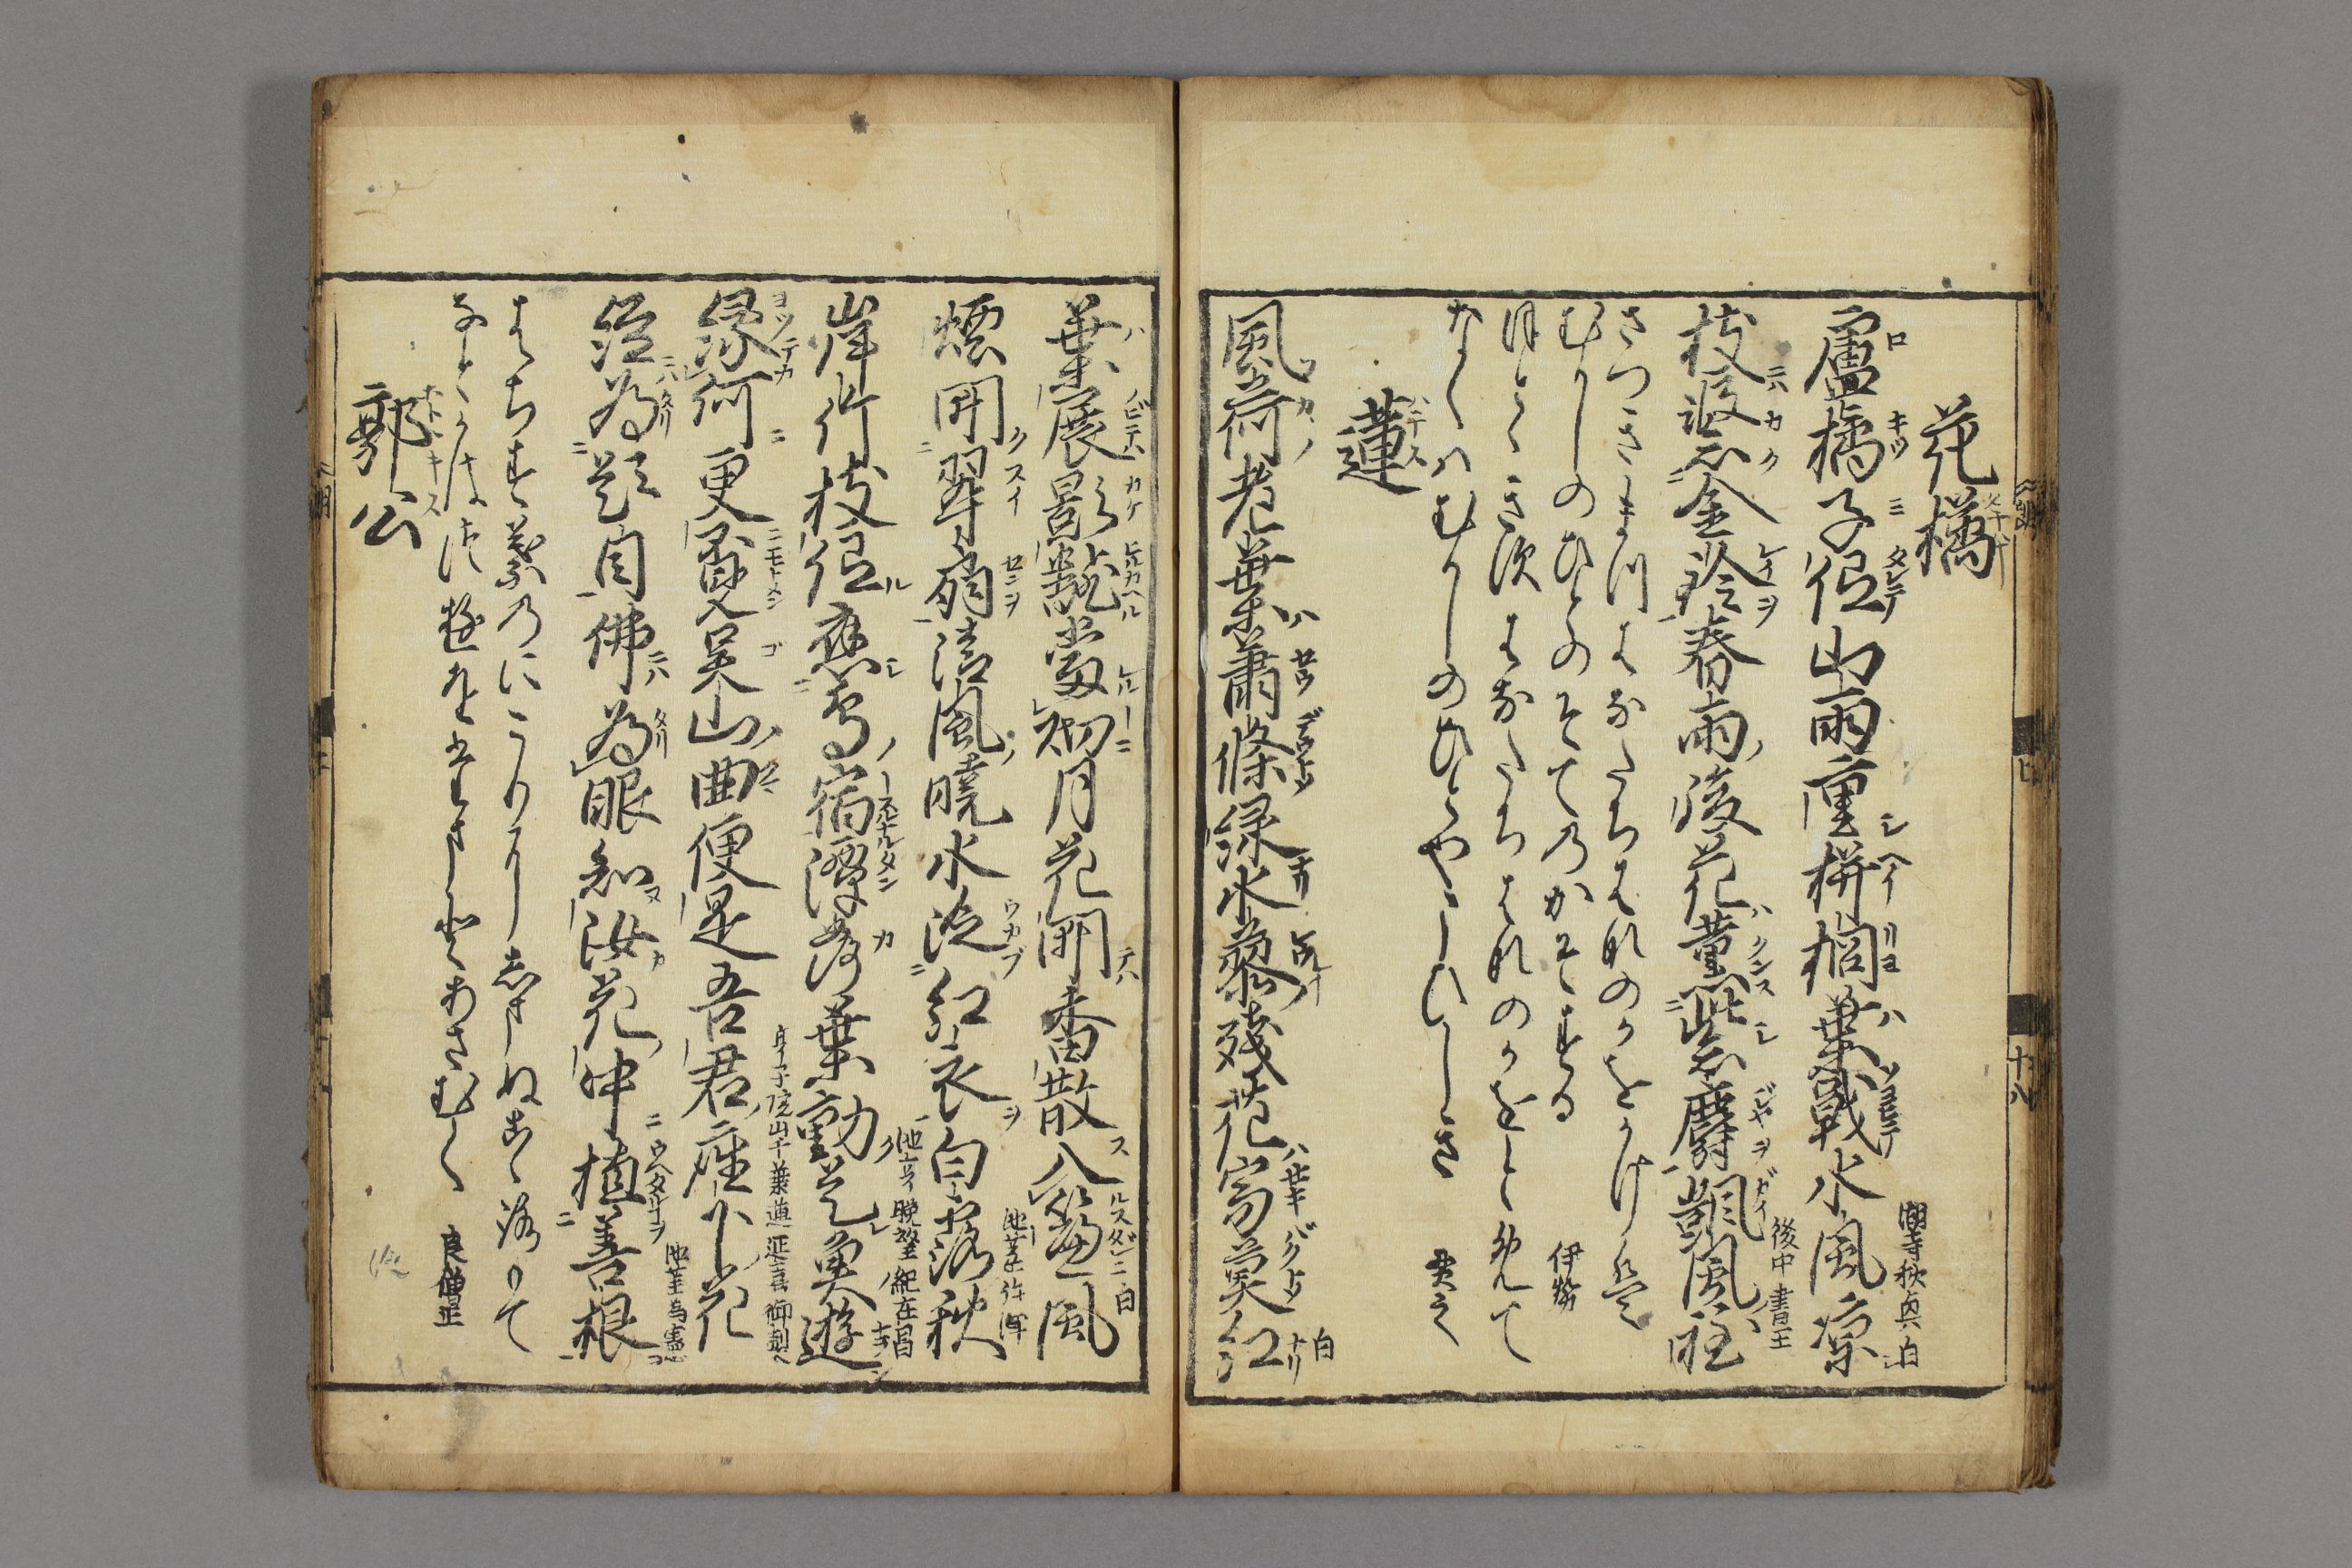 花橘
盧橘子低山雨重栟櫚葉戰水風凉
枝繋金鈴春雨後花薫紫麝凱風程
後中書王
むかしのひとのそてのかそする
伊勢
ほとゝきすはなたちはなのかをとめて
なくはむかしのひとやこひしき
貫之
蓮
風荷老葉蕭條緑水蓼殘花寂寞紅
白
十八
葉展影翻當砌月花開香散入簾風
白
煙開翠扇清風曉水泛紅衣白露秋
岸竹枝低應鳥宿潭荷葉動是魚遊
池亭晩望 紀在昌
縁何更覓呉山曲便是吾君座下花
亭子院山千葉蓮 延喜御製
經為題目佛為眼知汝花中植善根
為憲
はちす葉のにこりにしまぬこゝろもて
なにかは露を玉とあさむく
良僧正
郭公